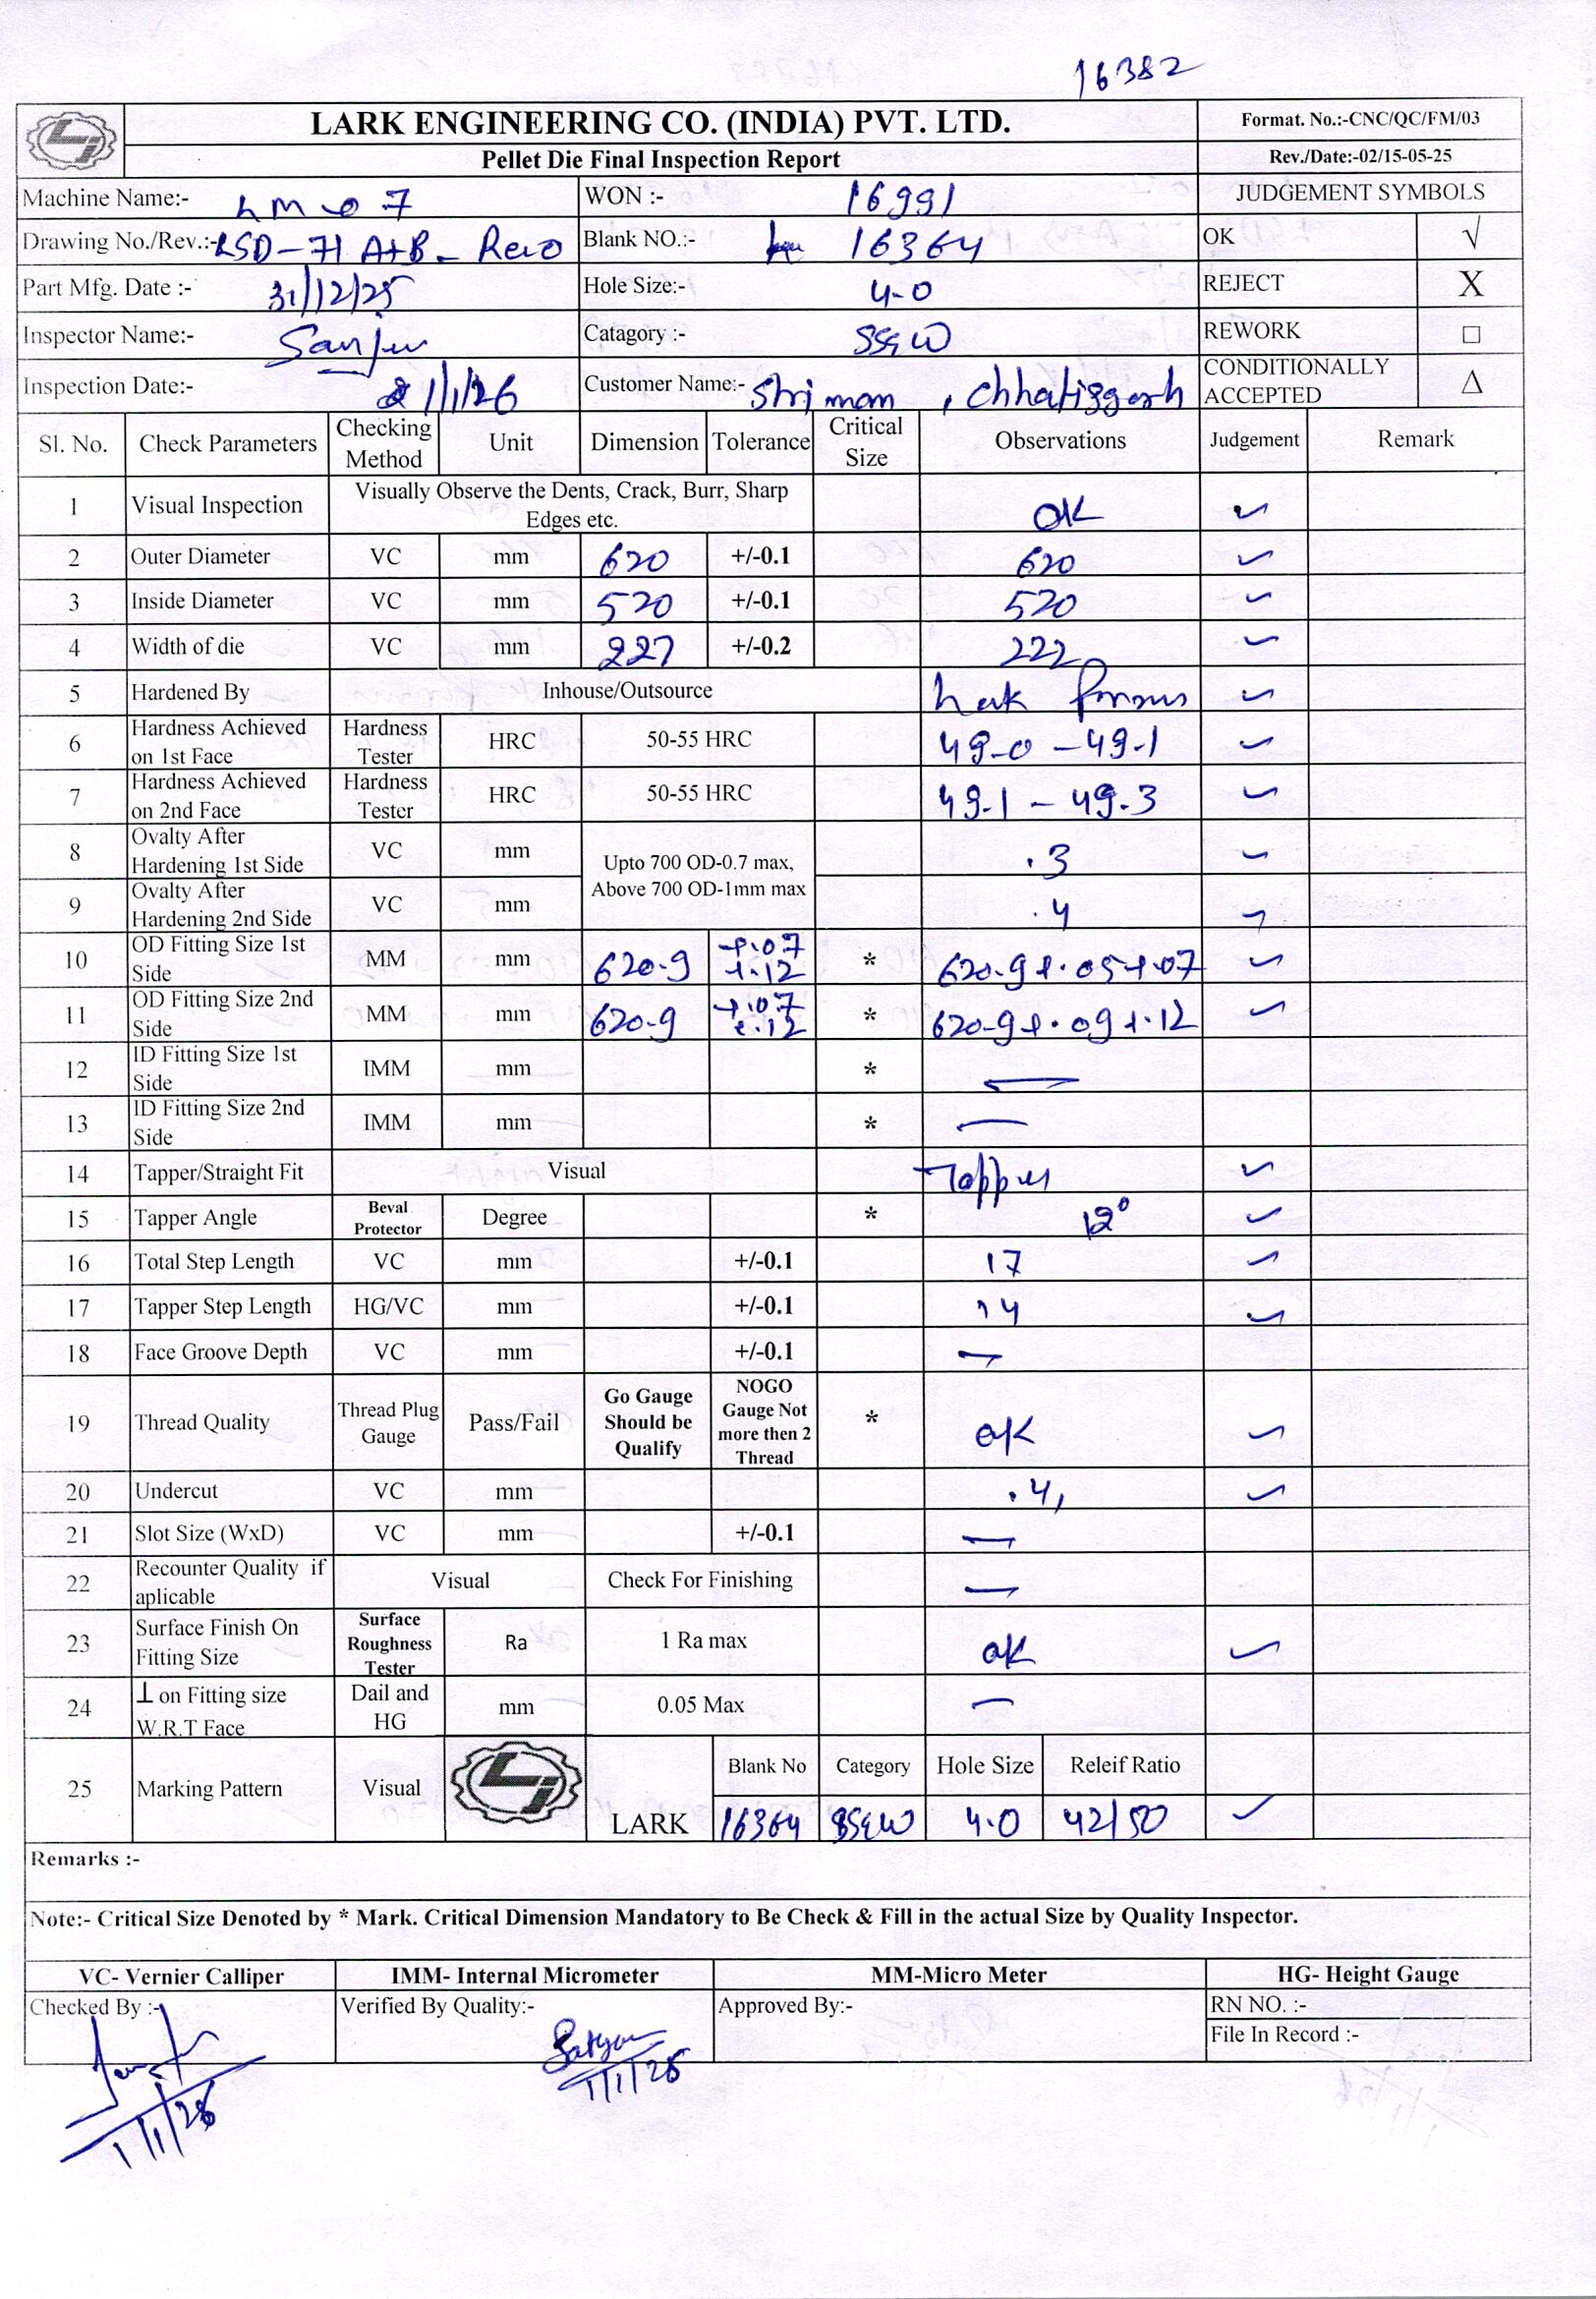 16382
LARK ENGINEERING CO. (INDIA) PVT. LTD.
Format. No.:-CNC/QC/FM/03
Pellet Die Final Inspection Report
Rev./Date:-02/15-05-25
Machine Name:- LM 07 WON :- 16991 JUDGEMENT SYMBOLS
Drawing No./Rev.:- LSD-71 A+B - Rev0 Blank NO.:- 16364 OK √
Part Mfg. Date :- 31/12/25 Hole Size:- 4.0 REJECT X
Inspector Name:- Sanjeev Catagory :- SSEW REWORK □
Inspection Date:- 1/1/26 Customer Name:- Shri mom , Chhatisgarh CONDITIONALLY ACCEPTED Δ
Sl. No. Check Parameters Checking Method Unit Dimension Tolerance Critical Size Observations Judgement Remark
1 Visual Inspection Visually Observe the Dents, Crack, Burr, Sharp Edges etc. OK ✓
2 Outer Diameter VC mm 620 +/-0.1 620 ✓
3 Inside Diameter VC mm 520 +/-0.1 520 ✓
4 Width of die VC mm 227 +/-0.2 222 ✓
5 Hardened By Inhouse/Outsource Lark ✓
6 Hardness Achieved on 1st Face Hardness Tester HRC 50-55 HRC 49.0 - 49.1 ✓
7 Hardness Achieved on 2nd Face Hardness Tester HRC 50-55 HRC 49.1 - 49.3 ✓
8 Ovalty After Hardening 1st Side VC mm Upto 700 OD-0.7 max, Above 700 OD-1mm max .3 ✓
9 Ovalty After Hardening 2nd Side VC mm .4 ✓
10 OD Fitting Size 1st Side MM mm 620.9 +.07 +.12 * 620.9+.05+.07 ✓
11 OD Fitting Size 2nd Side MM mm 620.9 +.07 +.12 * 620.9+.09+.12 ✓
12 ID Fitting Size 1st Side IMM mm * —
13 ID Fitting Size 2nd Side IMM mm * —
14 Tapper/Straight Fit Visual Tapper ✓
15 Tapper Angle Beval Protector Degree * 12° ✓
16 Total Step Length VC mm +/-0.1 17 ✓
17 Tapper Step Length HG/VC mm +/-0.1 14 ✓
18 Face Groove Depth VC mm +/-0.1 —
19 Thread Quality Thread Plug Gauge Pass/Fail Go Gauge Should be Qualify NOGO Gauge Not more then 2 Thread * OK ✓
20 Undercut VC mm .4, ✓
21 Slot Size (WxD) VC mm +/-0.1 —
22 Recounter Quality if aplicable Visual Check For Finishing —
23 Surface Finish On Fitting Size Surface Roughness Tester Ra 1 Ra max OK ✓
24 ⊥ on Fitting size W.R.T Face Dail and HG mm 0.05 Max —
25 Marking Pattern Visual LARK Blank No Category Hole Size Releif Ratio
16364 SSEW 4.0 42/50 ✓
Remarks :-
Note:- Critical Size Denoted by * Mark. Critical Dimension Mandatory to Be Check & Fill in the actual Size by Quality Inspector.
VC- Vernier Calliper IMM- Internal Micrometer MM-Micro Meter HG- Height Gauge
Checked By :- Verified By Quality:- Approved By:- RN NO. :-
File In Record :-
Satyam
1/1/26
1/1/26